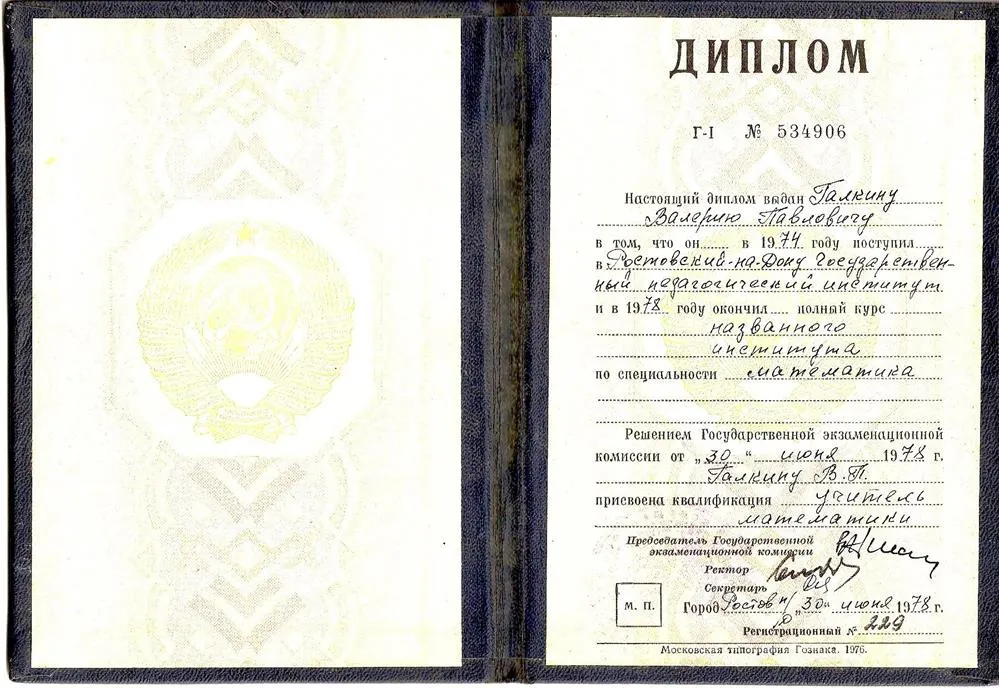 ДИПЛОМ
Г-I № 534906
Настоящий диплом выдан Галкину
Валерию Павловичу
в том, что он в 1974 году поступил
в Ростовский-на-Дону государствен-
ный педагогический институт
и в 1978 году окончил полный курс
названного
института
по специальности математика
Решением Государственной экзаменационной
комиссии от „30" июня 1978 г.
Галкину В.П.
присвоена квалификация учитель
математики
Председатель Государственной
экзаменационной комиссии
Ректор
Секретарь
М. П.
Город Ростов н/Д „30" июня 1978 г.
Регистрационный № 229
Московская типография Гознака. 1976.